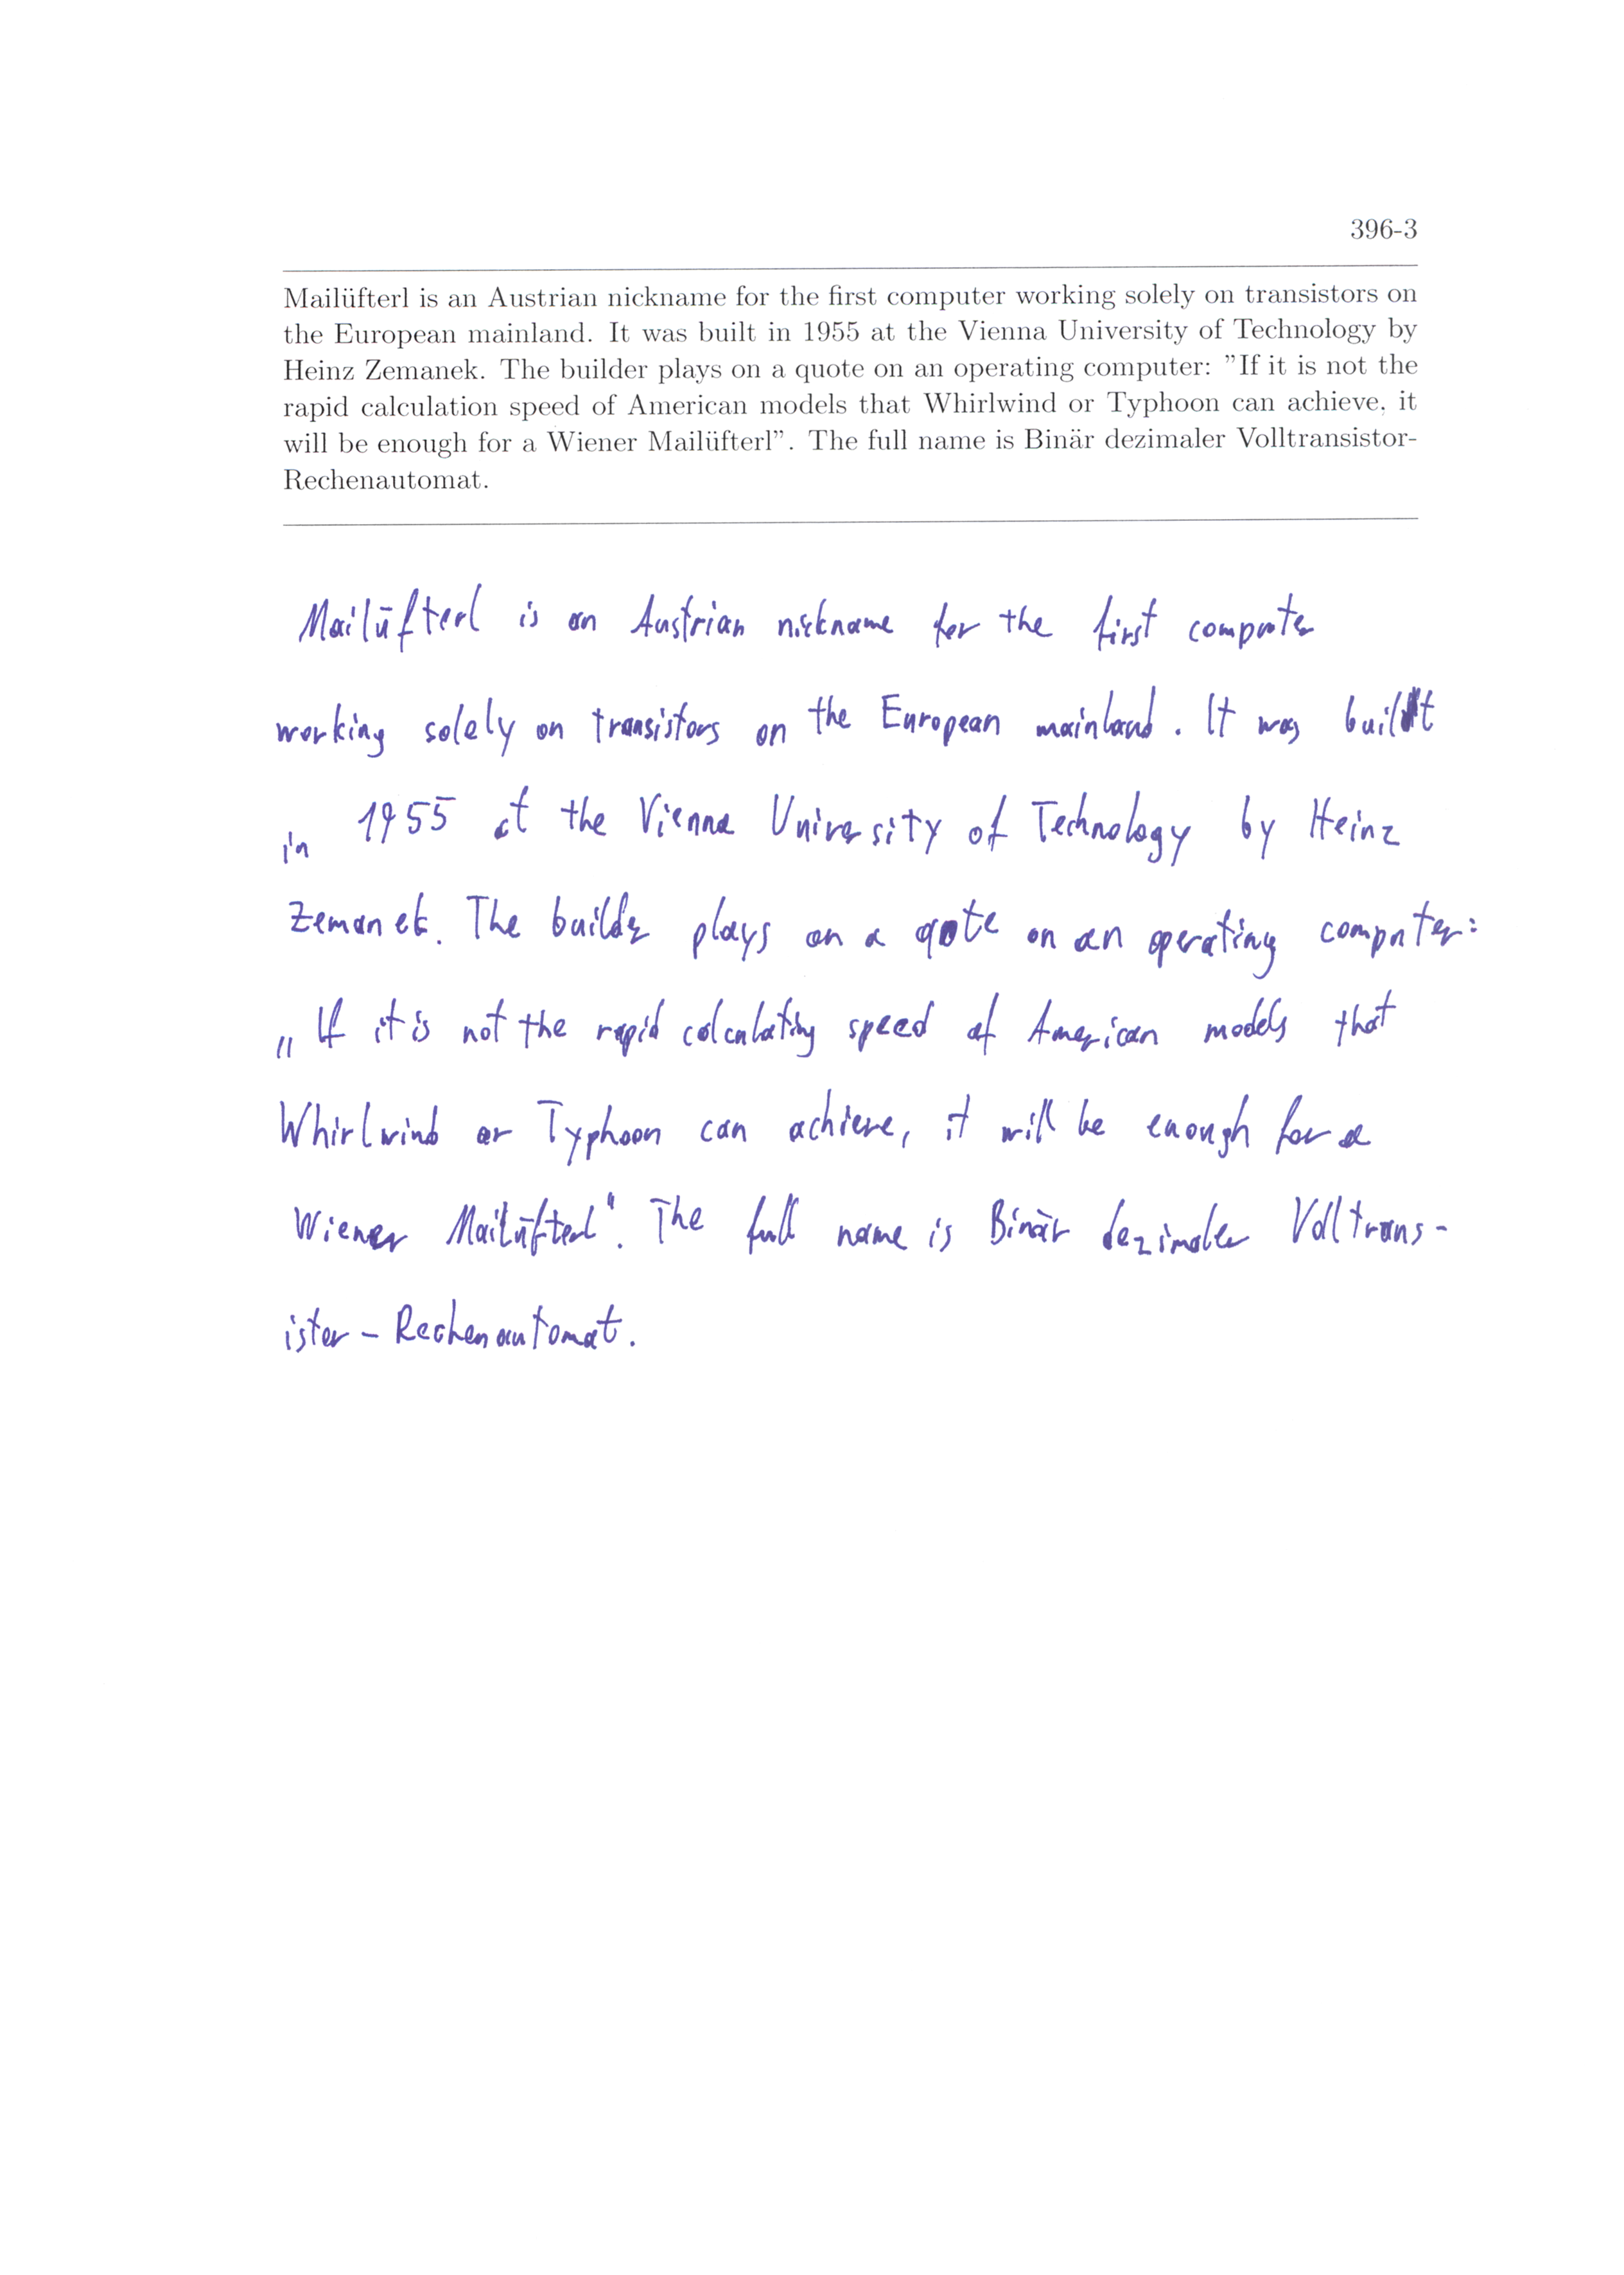 396-3
Mailüfterl is an Austrian nickname for the first computer working solely on transistors on
the European mainland. It was built in 1955 at the Vienna University of Technology by
Heinz Zemanek. The builder plays on a quote on an operating computer: "If it is not the
rapid calculation speed of American models that Whirlwind or Typhoon can achieve, it
will be enough for a Wiener Mailüfterl". The full name is Binär dezimaler Volltransistor-
Rechenautomat.
Mailüfterl is an Austrian nickname for the first computer
working solely on transistors on the European mainland. It was built
in 1955 at the Vienna University of Technology by Heinz
Zemanek. The builder plays on a qote on an operating computer:
„If it is not the rapid calculating speed of American models that
Whirlwind or Typhoon can achieve, it will be enough for a
Wiener Mailüfterl". The full name is Binär dezimaler Volltrans-
istor-Rechenautomat.